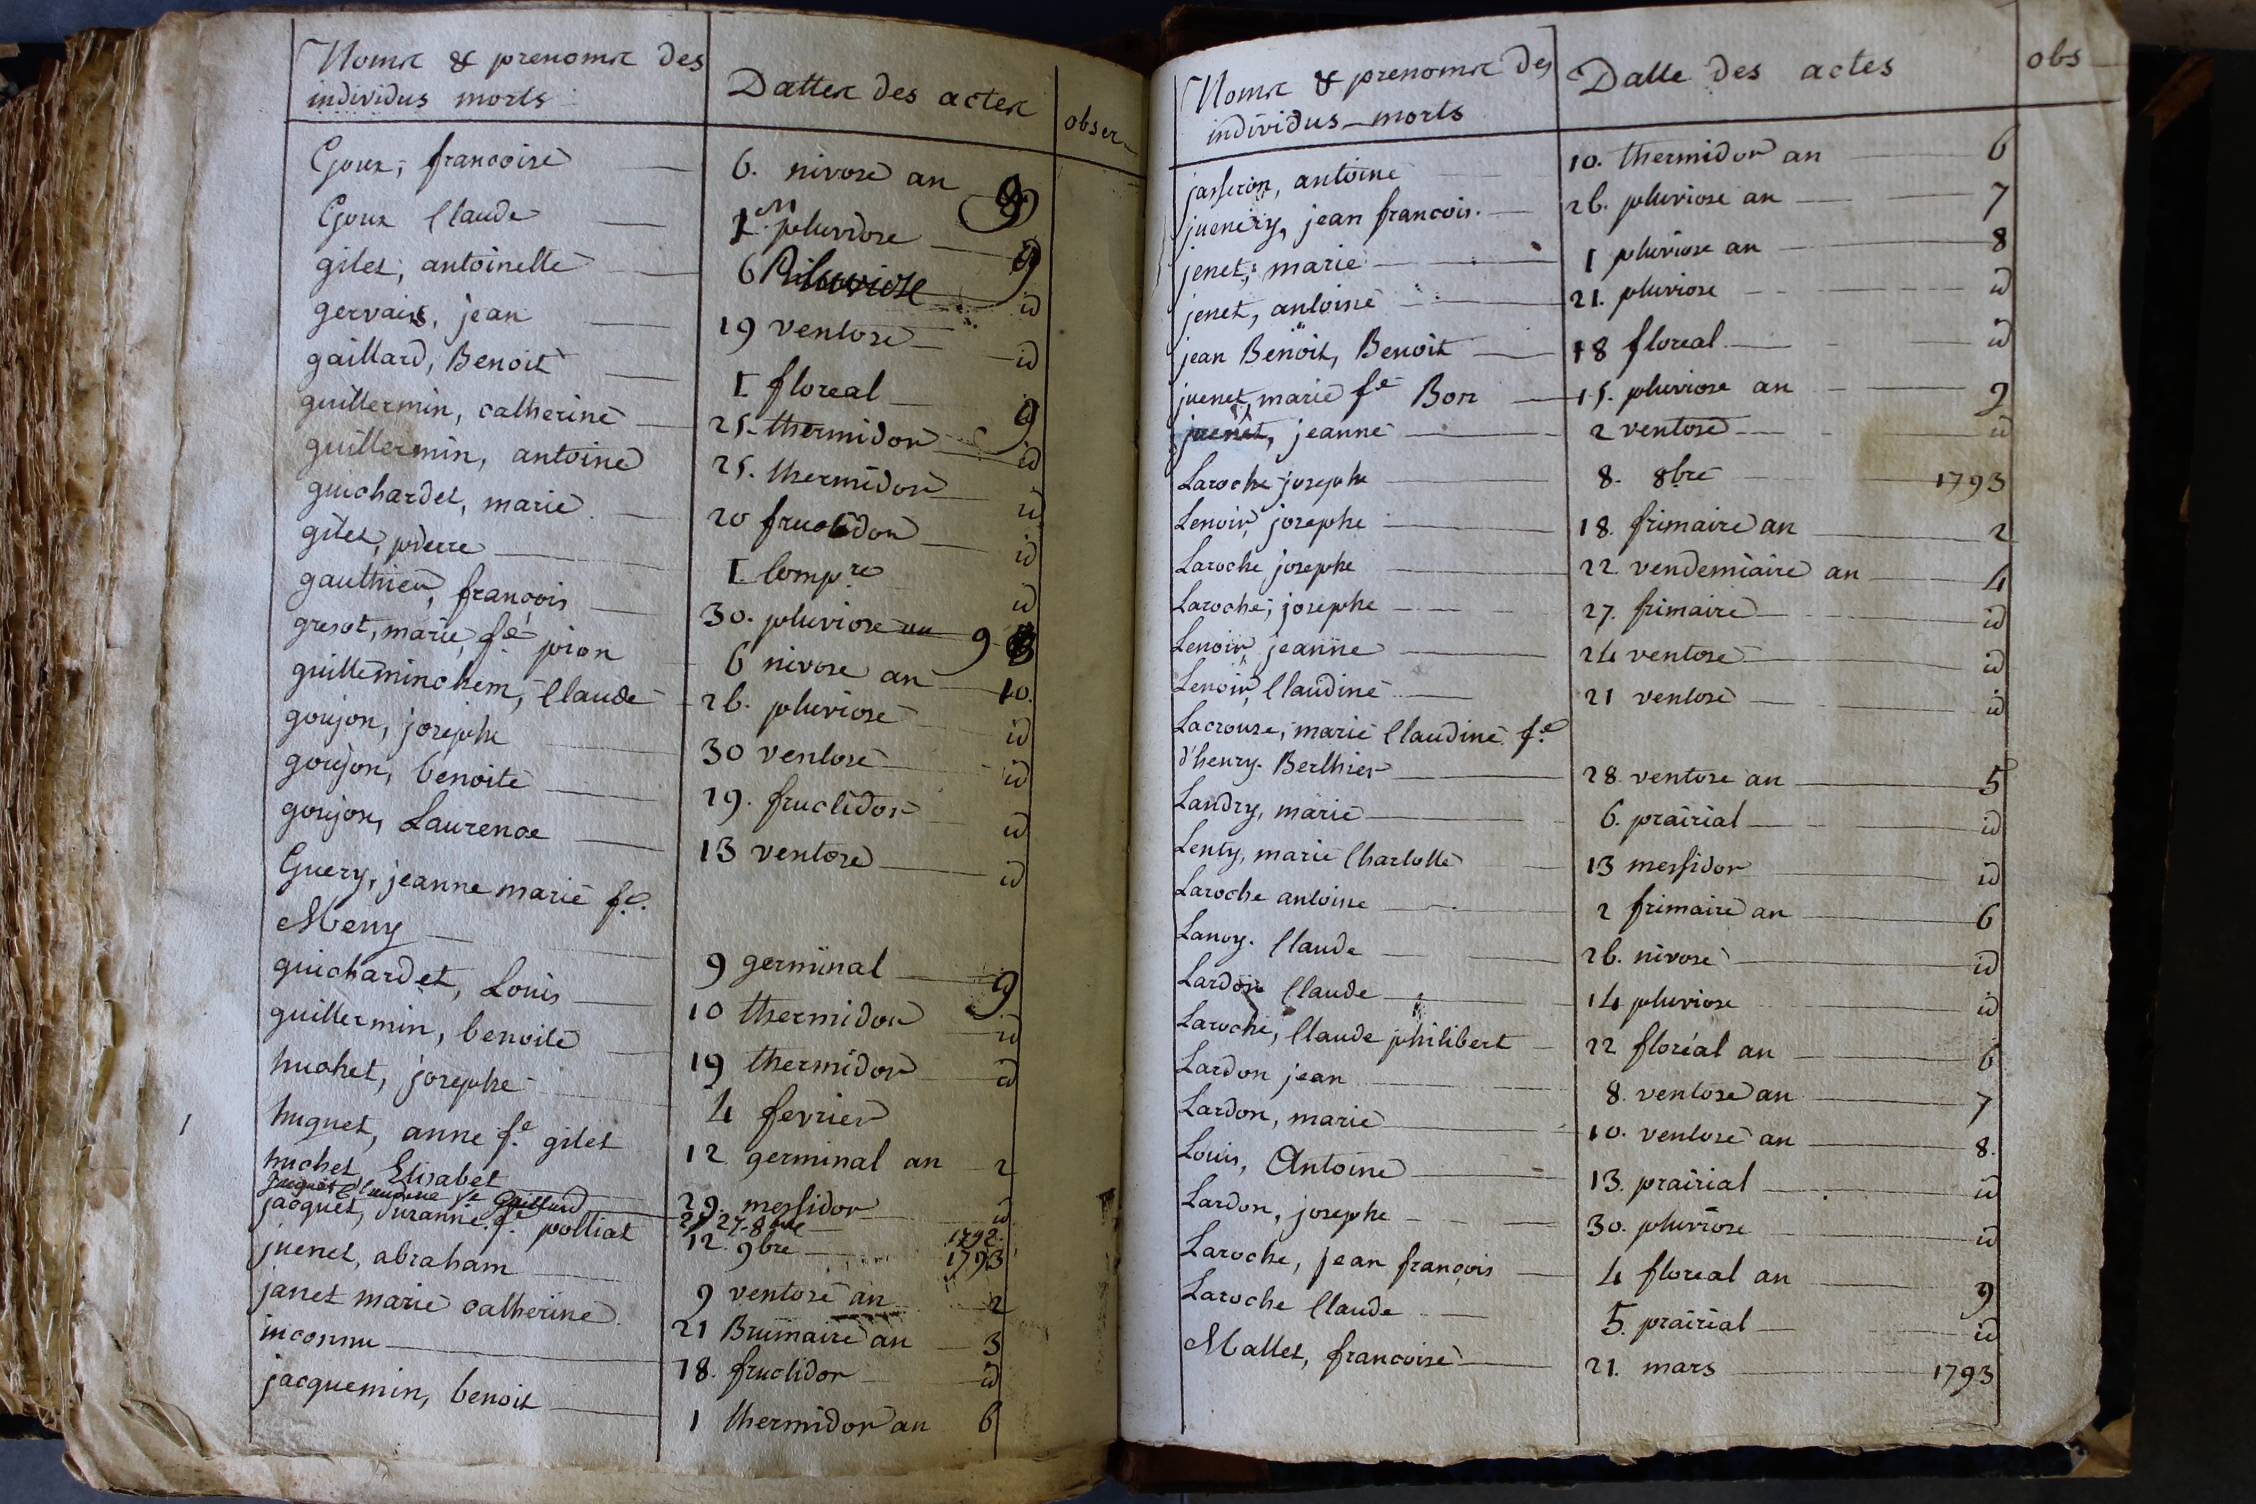 Noms & prenoms des
individus morts
Dattes des actes
obser
Goux, francoise 6. nivose an 9
Goux Claude 1er pluviose 9
gilet, antoinette 6 Pluviose id
gervais, jean 19 ventose id
gaillard, Benoit 1 floreal 9
guillermin, catherine 25. thermidor id
guillermin, antoine 25. thermidor id
guichardet, marie 20 fructidor id
gilet, pierre 1. Compre id
gauthier, francois 30. pluviose an 9
gresot, marie, fe pion 6 nivose an 10.
guilleminchem, Claude 26. pluviose id
goujon, josephe 30 ventose id
goujon, benoite 29. fructidor id
goujon, Laurence 13 ventose id
Guery, jeanne marie fe.
Meny 9 germinal 9
guichardet, Louis 10 thermidor id
guillermin, benoite 19 thermidor id
huchet, josephe 4 fevrier
huguet, anne fe. gilet 12 germinal an 2
huchet, Elisabet 29. messidor id
Jacquet Claudine fe Guillard 27-8bre 1792.
jacquet, suzanne. fe polliat 12. 9bre 1793
juenet, abraham 9 ventose an 2
janet marie catherine 21 Brumaire an 3
inconnu 18. fructidor id
jacquemin, benoit 1 thermidor an 6
Noms & prenoms des
individus morts
Datte des actes
obs
jasseron, antoine 10. thermidor an 6
juenery, jean francois. 26. pluviose an 7
jenet, marie 1 pluviose an 8
jenet, antoine 21. pluviose id
jean Benoit, Benoit 18 floreal id
juenet, marie fe Bon 15. pluviose an 9
juenet, jeanne 2 ventose id
Laroche josephe 8. 8bre 1793
Lenoir, josephe 18. frimaire an 2
Laroche josephe 22 vendemiaire an 4
Laroche, josephe 27. frimaire id
Lenoir, jeanne 24 ventose id
Lenoir, Claudine 21 ventose id
Lacrouze, marie Claudine fe
d'henry. Berthier 28 ventose an 5
Landry, marie 6. prairial id
Lenty, marie Charlotte 13 messidor id
Laroche antoine 2 frimaire an 6
Lanoy. Claude 26. nivose id
Lardon Claude 14 pluviose id
Laroche, Claude philibert 22 floréal an 6
Lardon jean 8. ventose an 7
Lardon, marie 10. ventose an 8.
Louis, Antoine 13. prairial id
Lardon, josephe 30. pluviose id
Laroche, jean françois 4 floreal an 9
Laroche Claude 5. prairial id
Mallet, francoise 21. mars 1793